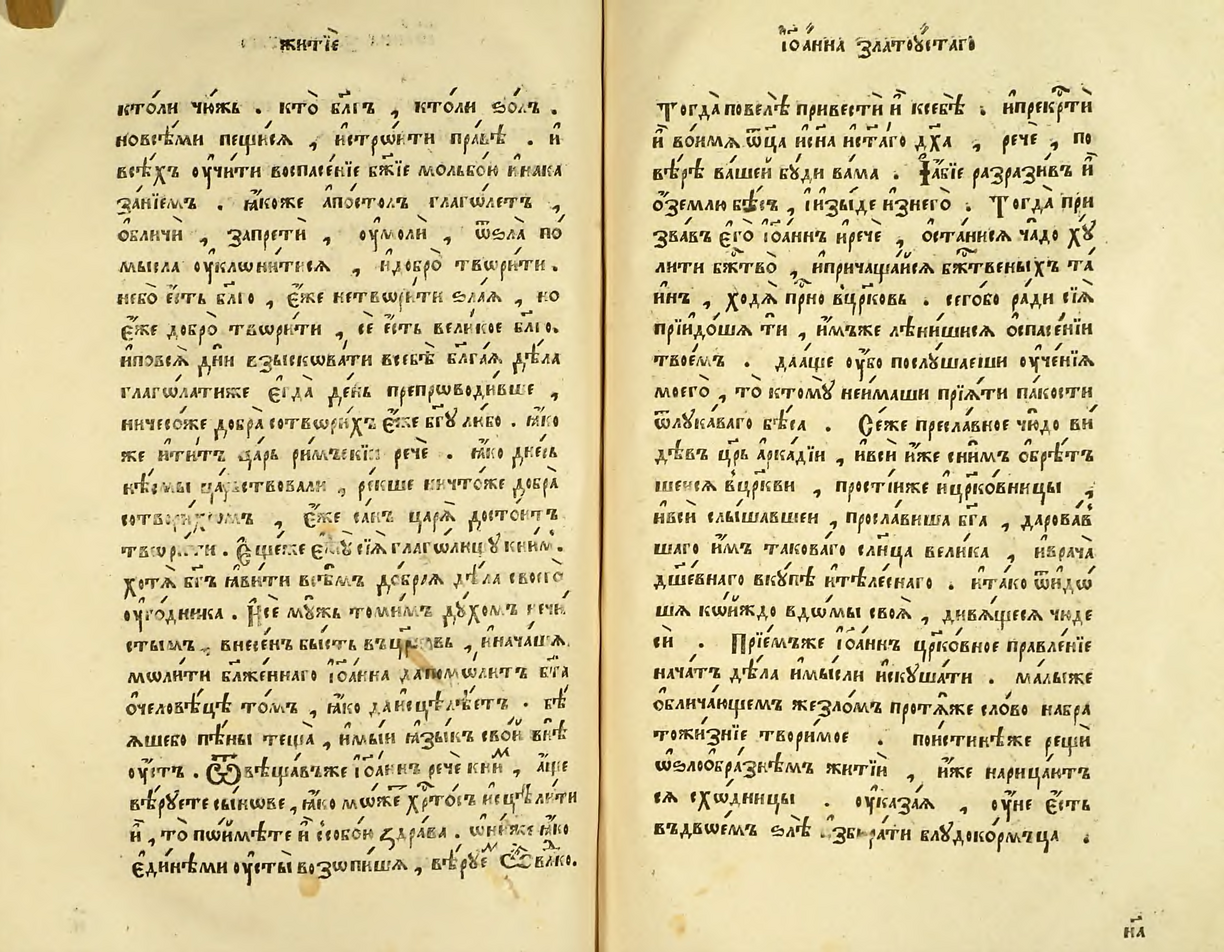 житїѐ
кто́ли чю́жь . кто̀ бл҃гъ , кто́ли ѕо́лъ .
новсѣ́ми пещи́сѧ , и҆стрѡ́ити пра́вѣ . и҆
всѣ́хъ оу҆чи́ти воспасе́нїе бж҃їе мольбо́ю и҆нака
за́нїемъ . ꙗ҆́коже апо́столъ глаго́летъ ,
ѡ҆бличѝ , запретѝ , оу҆молѝ , ѿѕла̀ по
мысла оу҆клѡни́тисѧ , и҆добро̀ твѡри́ти .
небо̀ є҆́сть бл҃го , є҆́же нетвѡри́ти ѕла́ѧ , но
є҆́же добро̀ твѡри́ти , сѐ є҆́сть вели́кое бл҃го .
и҆повсѧ̀ дн҃и взыскѡва́ти всебѣ̀ бл҃га́ѧ дѣ́ла
глаго́латиже є҆гда̀ де́нь препрѡводи́вше ,
ничесо́же добра̀ сотвѡри́хъ є҆́же бг҃ꙋ лю́бо . ꙗ҆́ко
же и҆ти́тъ ца́рь ри́мъскїи речѐ . ꙗ҆́ко дне́сь
нѣ́смы ца́рьствовали , ре́кше ничто́же добра̀
сотвори́хомъ , є҆́же са́нъ царѧ̀ досто́итъ
твѡри́ти . Є҆щеже є҆мꙋ̀ сїѧ̀ глаго́лющꙋ кни́м .
хотѧ̀ бг҃ъ ꙗ҆ви́ти всѣ́мъ до́браѧ дѣ́ла своего̀
оу҆го́дника . И҆сѐ мꙋ́жь томи́мъ дꙋ́хомъ нечи
стымъ , внесе́нъ бы́сть въцр҃ковь , и҆нача́шѧ
мѡли́ти блаже́ннаго і҆ѡа́нна дапомѡ́литъ бг҃а
ѡ҆человѣ́цѣ то́мъ , ꙗ҆́ко даи҆сцѣлѣ́етъ . бѣ̀
ѧшебо пѣ́ны теща̀ , и҆мы́и ꙗ҆зы́къ сво́и внѣ̀
оу҆́стъ . Ѿвѣща́въже і҆ѡа́ннъ рече кни́м , а҆́ще
вѣ́рꙋете сы́нѡве , ꙗ҆́ко мѡ́же хр҃то́съ и҆сцѣли́ти
и҆̀ , то̀ пѡи҆мѣ́те и҆̀ ссобо́ю здра́ва . ѡ҆ни́же ꙗ҆́ко
є҆ди́нѣми оу҆сты̀ возѡпи́шѧ , вѣ́рꙋем Ѿвл҃ко .
і҆ѡа́нна златоꙋ́стаго
Тогда̀ повелѣ̀ привестѝ и҆̀ ксебѣ̀ . и҆прекр҃ти
и҆̀ вои҆́мѧ ѿц҃а и҆сн҃а и҆ст҃а́го дх҃а , рече , по
вѣ́рѣ ва́шей бꙋ́ди ва́ма . І҆а́бїе разрази́въ и҆̀
ѡ҆́землю бѣ́съ , і҆изы́де и҆знего̀ . Тогда̀ при
зва́въ є҆го̀ і҆ѡа́ннъ и҆рече , ѡ҆ста́нисѧ ча́до хꙋ
ли́ти бж҃тво̀ , и҆прича́щайсѧ бж҃твеныхъ та́
и҆нъ , ходѧ̀ пр҃но вцр҃ковь . сего́бо ра́ди сїѧ̀
прїидо́шѧ ти , и҆́мъже лѣни́шисѧ ѡ҆спасе́нїи
твое́мъ . даа҆́ще оу҆́бо послꙋ́шаеши оу҆че́нїѧ
моего̀ , то̀ ктомꙋ̀ неи҆́маши прїѧ́ти па́кости
ѿлꙋка́ваго бѣ́са . Се́же пресла́вное чю́до ви́
дѣвъ цр҃ь арка́дїи , и҆всѝ и҆́же сни́мъ ѡ҆брѣ́тъ
шеисѧ вцр҃кви , прості́иже и҆цр҃ко́вницы ,
и҆всѝ слы́шавшеи , просла́виша бг҃а , дарова́в
шаго и҆́мъ такова́го сл҃нца вели́ка , и҆врача̀
дш҃е́внаго вкꙋ́пѣ и҆тѣле́снаго . и҆та́ко ѿидѡ́
шѧ кѡ́йждо вдѡ́мы своѧ̀ , дивѧ́щесѧ чюде
сѝ . Прїе́мъже і҆ѡа́ннъ цр҃ко́вное правле́нїе
нача́тъ дѣ́ла и҆мы́сли и҆скꙋша́ти . ма́лыже
ѡ҆блича́ющемъ жезло́мъ протѧ́же сло́во набра́
тожи́знїе твори́мое . пои́стинѣже рещѝ
ѡ҆ѕлоѡбра́знѣмъ житїѝ , и҆́же нарица́ютъ
сѧ схѡ́дницы . оу҆каза́ѧ , оу҆́не є҆́сть
въдвѡе́мъ ѕлѣ̀ збира́ти блꙋдоко́рмъца .
на҃